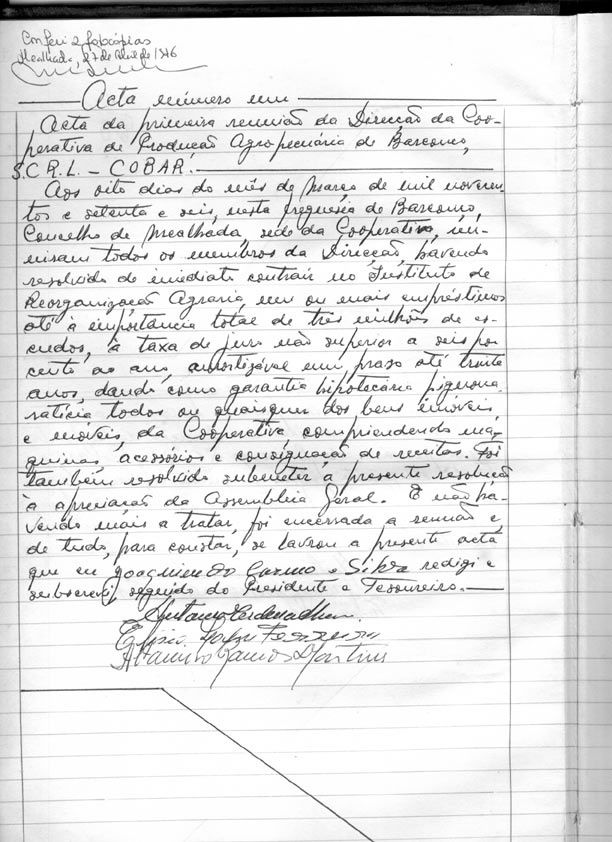 Conferi 2 fotocópias
Mealhada, 27 de Abril de 1976
Acta número um
Acta da primeira reunião da Direcção da Coo-
perativa de Produção Agropecuária de Barcouço,
S.C.R.L. - COBAR.
Aos oito dias do mês de Março de mil novecen-
tos e setenta e seis, nesta freguesia de Barcouço,
Concelho de Mealhada, sede da Cooperativa, reu-
niram todos os membros da Direcção, havendo
resolvido de imediato contrair no Instituto de
Reorganização Agrária um ou mais empréstimos
até à importância total de três milhões de es-
cudos, à taxa de juro não superior a seis por
cento ao ano, amortizável em prazo até trinta
anos, dando como garantia hipotecária
todos ou quaisquer dos bens imóveis,
e móveis, da Cooperativa, compreendendo má-
quinas, acessórios e consignação de receitas. Foi
também resolvido submeter a presente resolução
à apreciação da Assembleia Geral. E não ha-
vendo mais a tratar, foi encerrada a reunião e,
de tudo, para constar, se lavrou a presente acta
que eu Joaquim do Carmo e Silva redigi e
subscrevi, seguido do Presidente e Tesoureiro.
António
Ferreira
Altamiro Ramos Martins